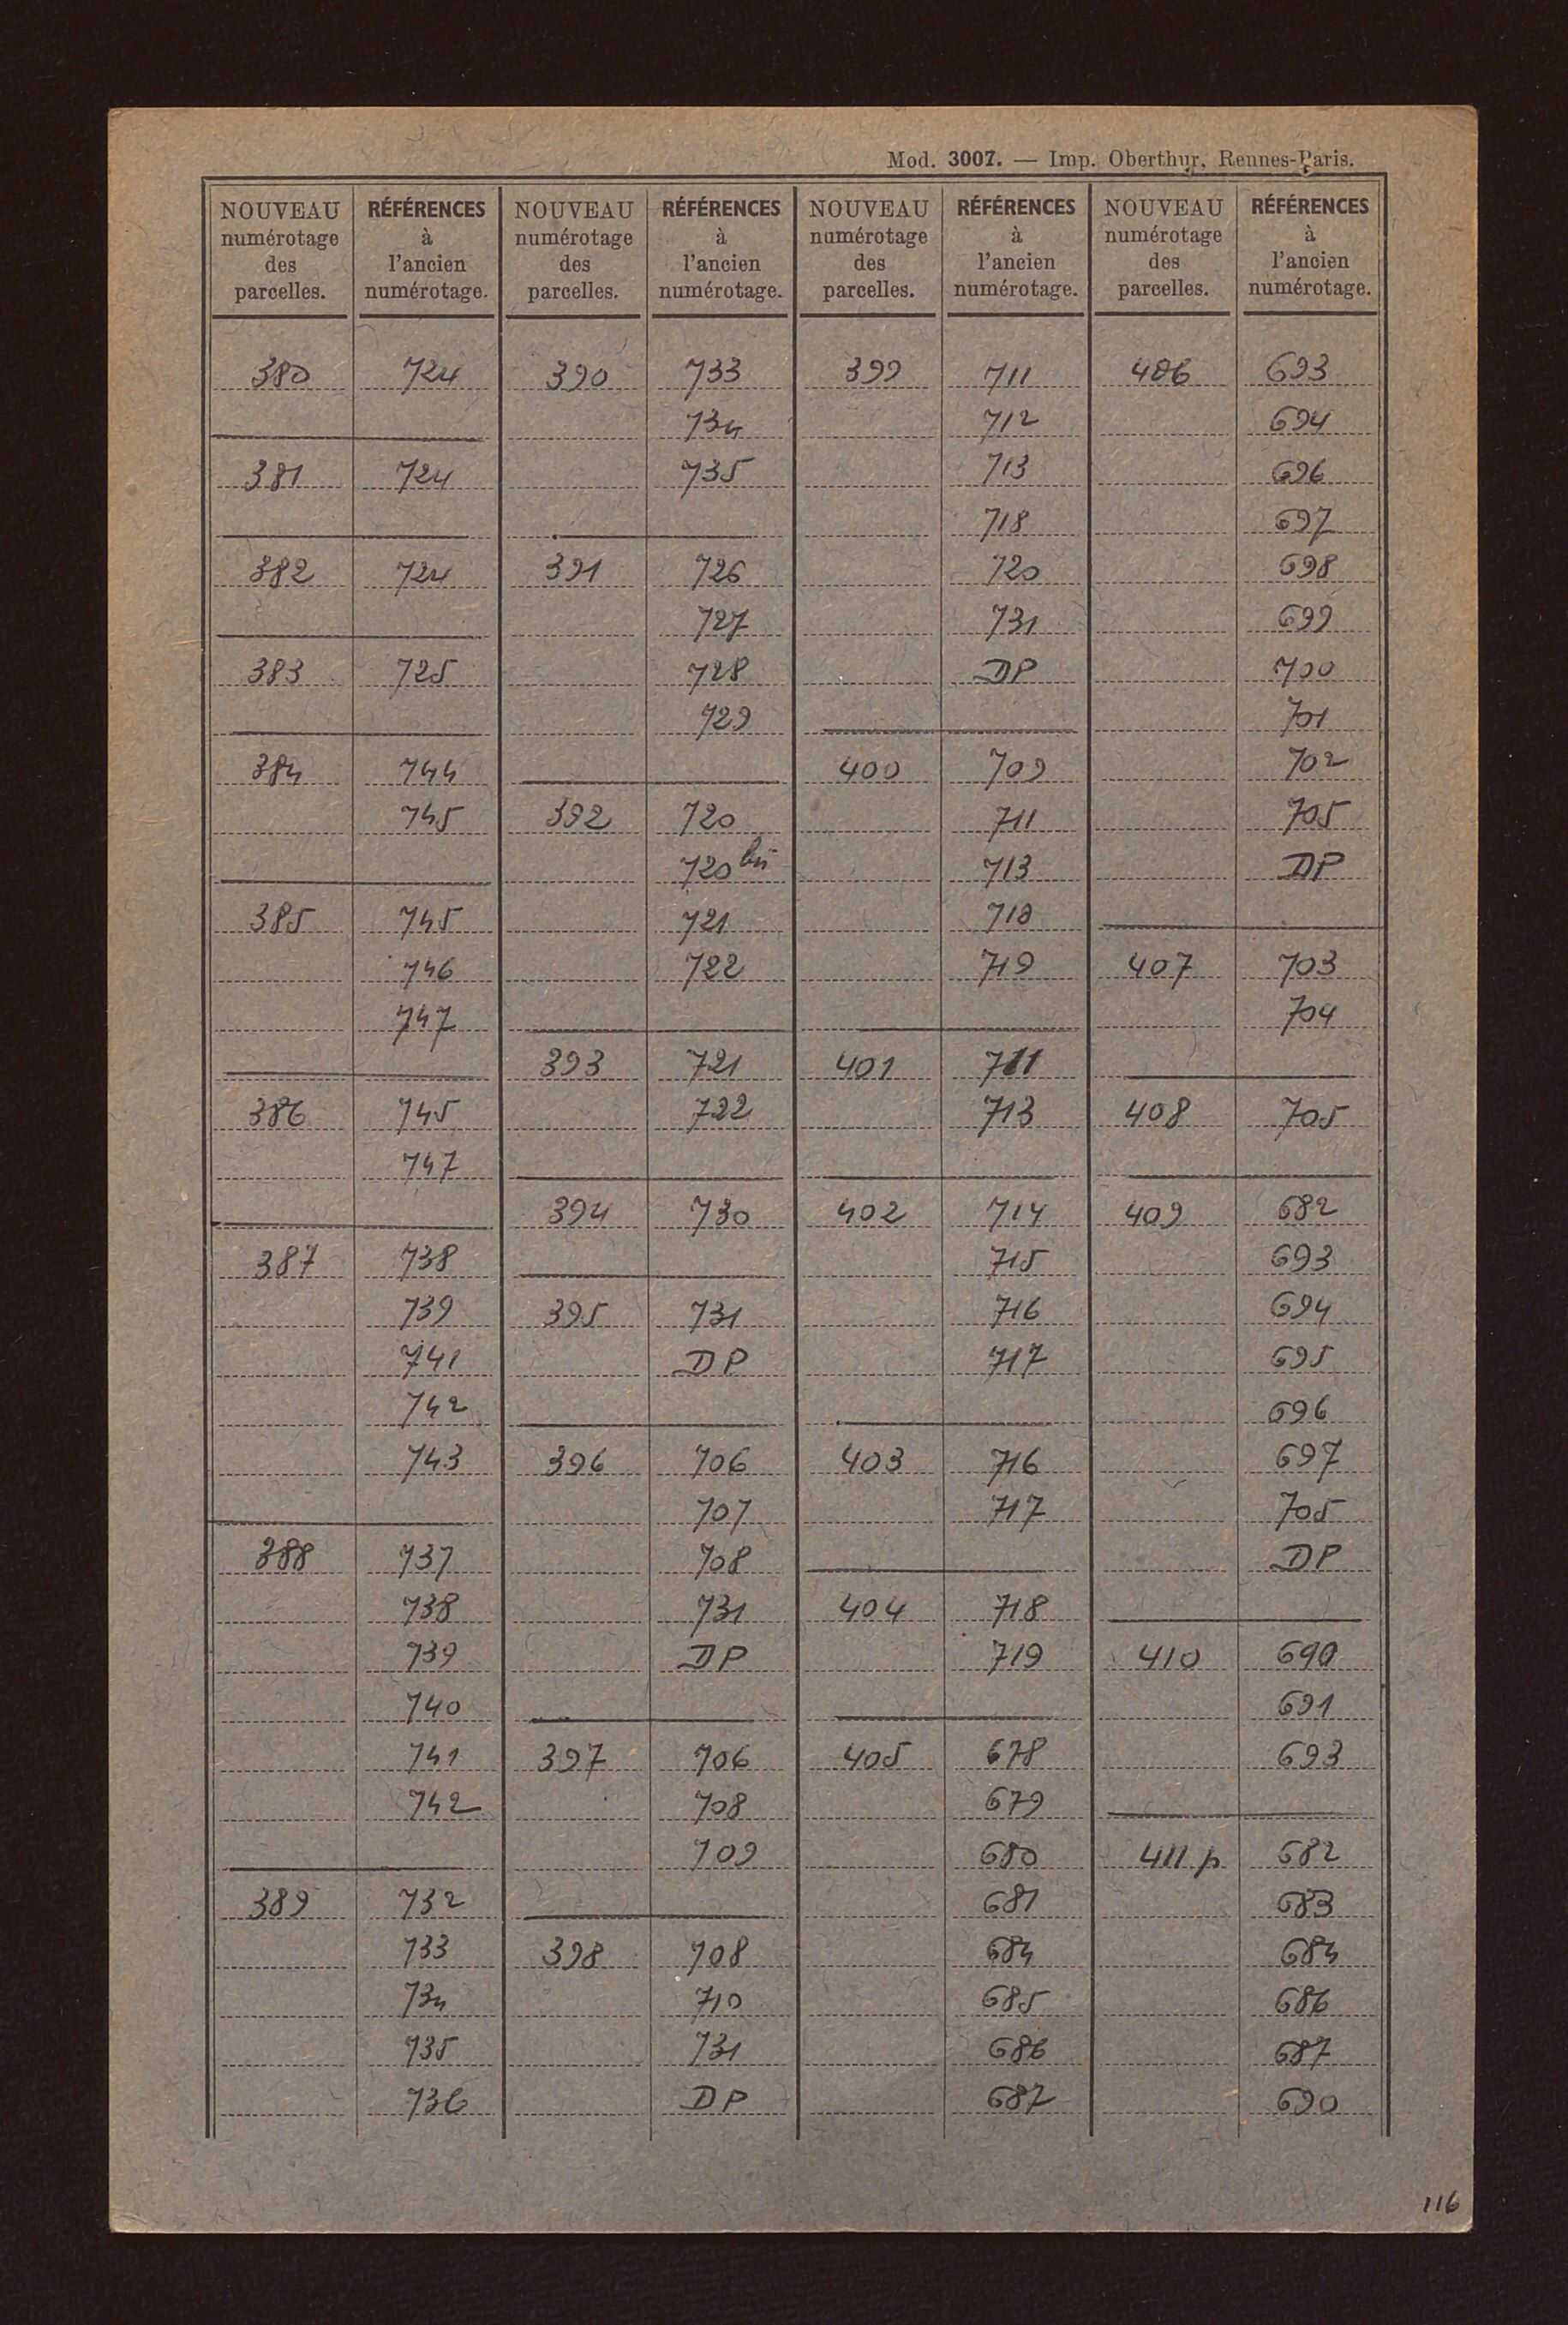 Mod. 3007. — Imp. Oberthur, Rennes-Paris.
NOUVEAU numérotage des parcelles. RÉFÉRENCES à l'ancien numérotage. NOUVEAU numérotage des parcelles. RÉFÉRENCES à l'ancien numérotage. NOUVEAU numérotage des parcelles. RÉFÉRENCES à l'ancien numérotage. NOUVEAU numérotage des parcelles. RÉFÉRENCES à l'ancien numérotage.
380 724 390 733 399 711 406 693
734 712 694
381 724 735 713 696
718 697
382 724 391 726 720 698
727 731 699
383 725 728 DP 700
729 701
384 744 400 709 702
745 392 720 711 705
720 bis 713 DP
385 745 721 718
746 722 719 407 703
747 704
393 721 401 711
386 745 722 713 408 705
747
394 730 402 714 409 682
387 738 715 693
739 395 731 716 694
741 DP 717 695
742 696
743 396 706 403 716 697
707 717 705
388 737 708 DP
738 731 404 718
739 DP 719 410 690
740 691
741 397 706 405 678 693
742 708 679
709 680 411 p 682
389 732 681 683
733 398 708 684 684
734 710 685 686
735 731 686 687
736 DP 687 690
116